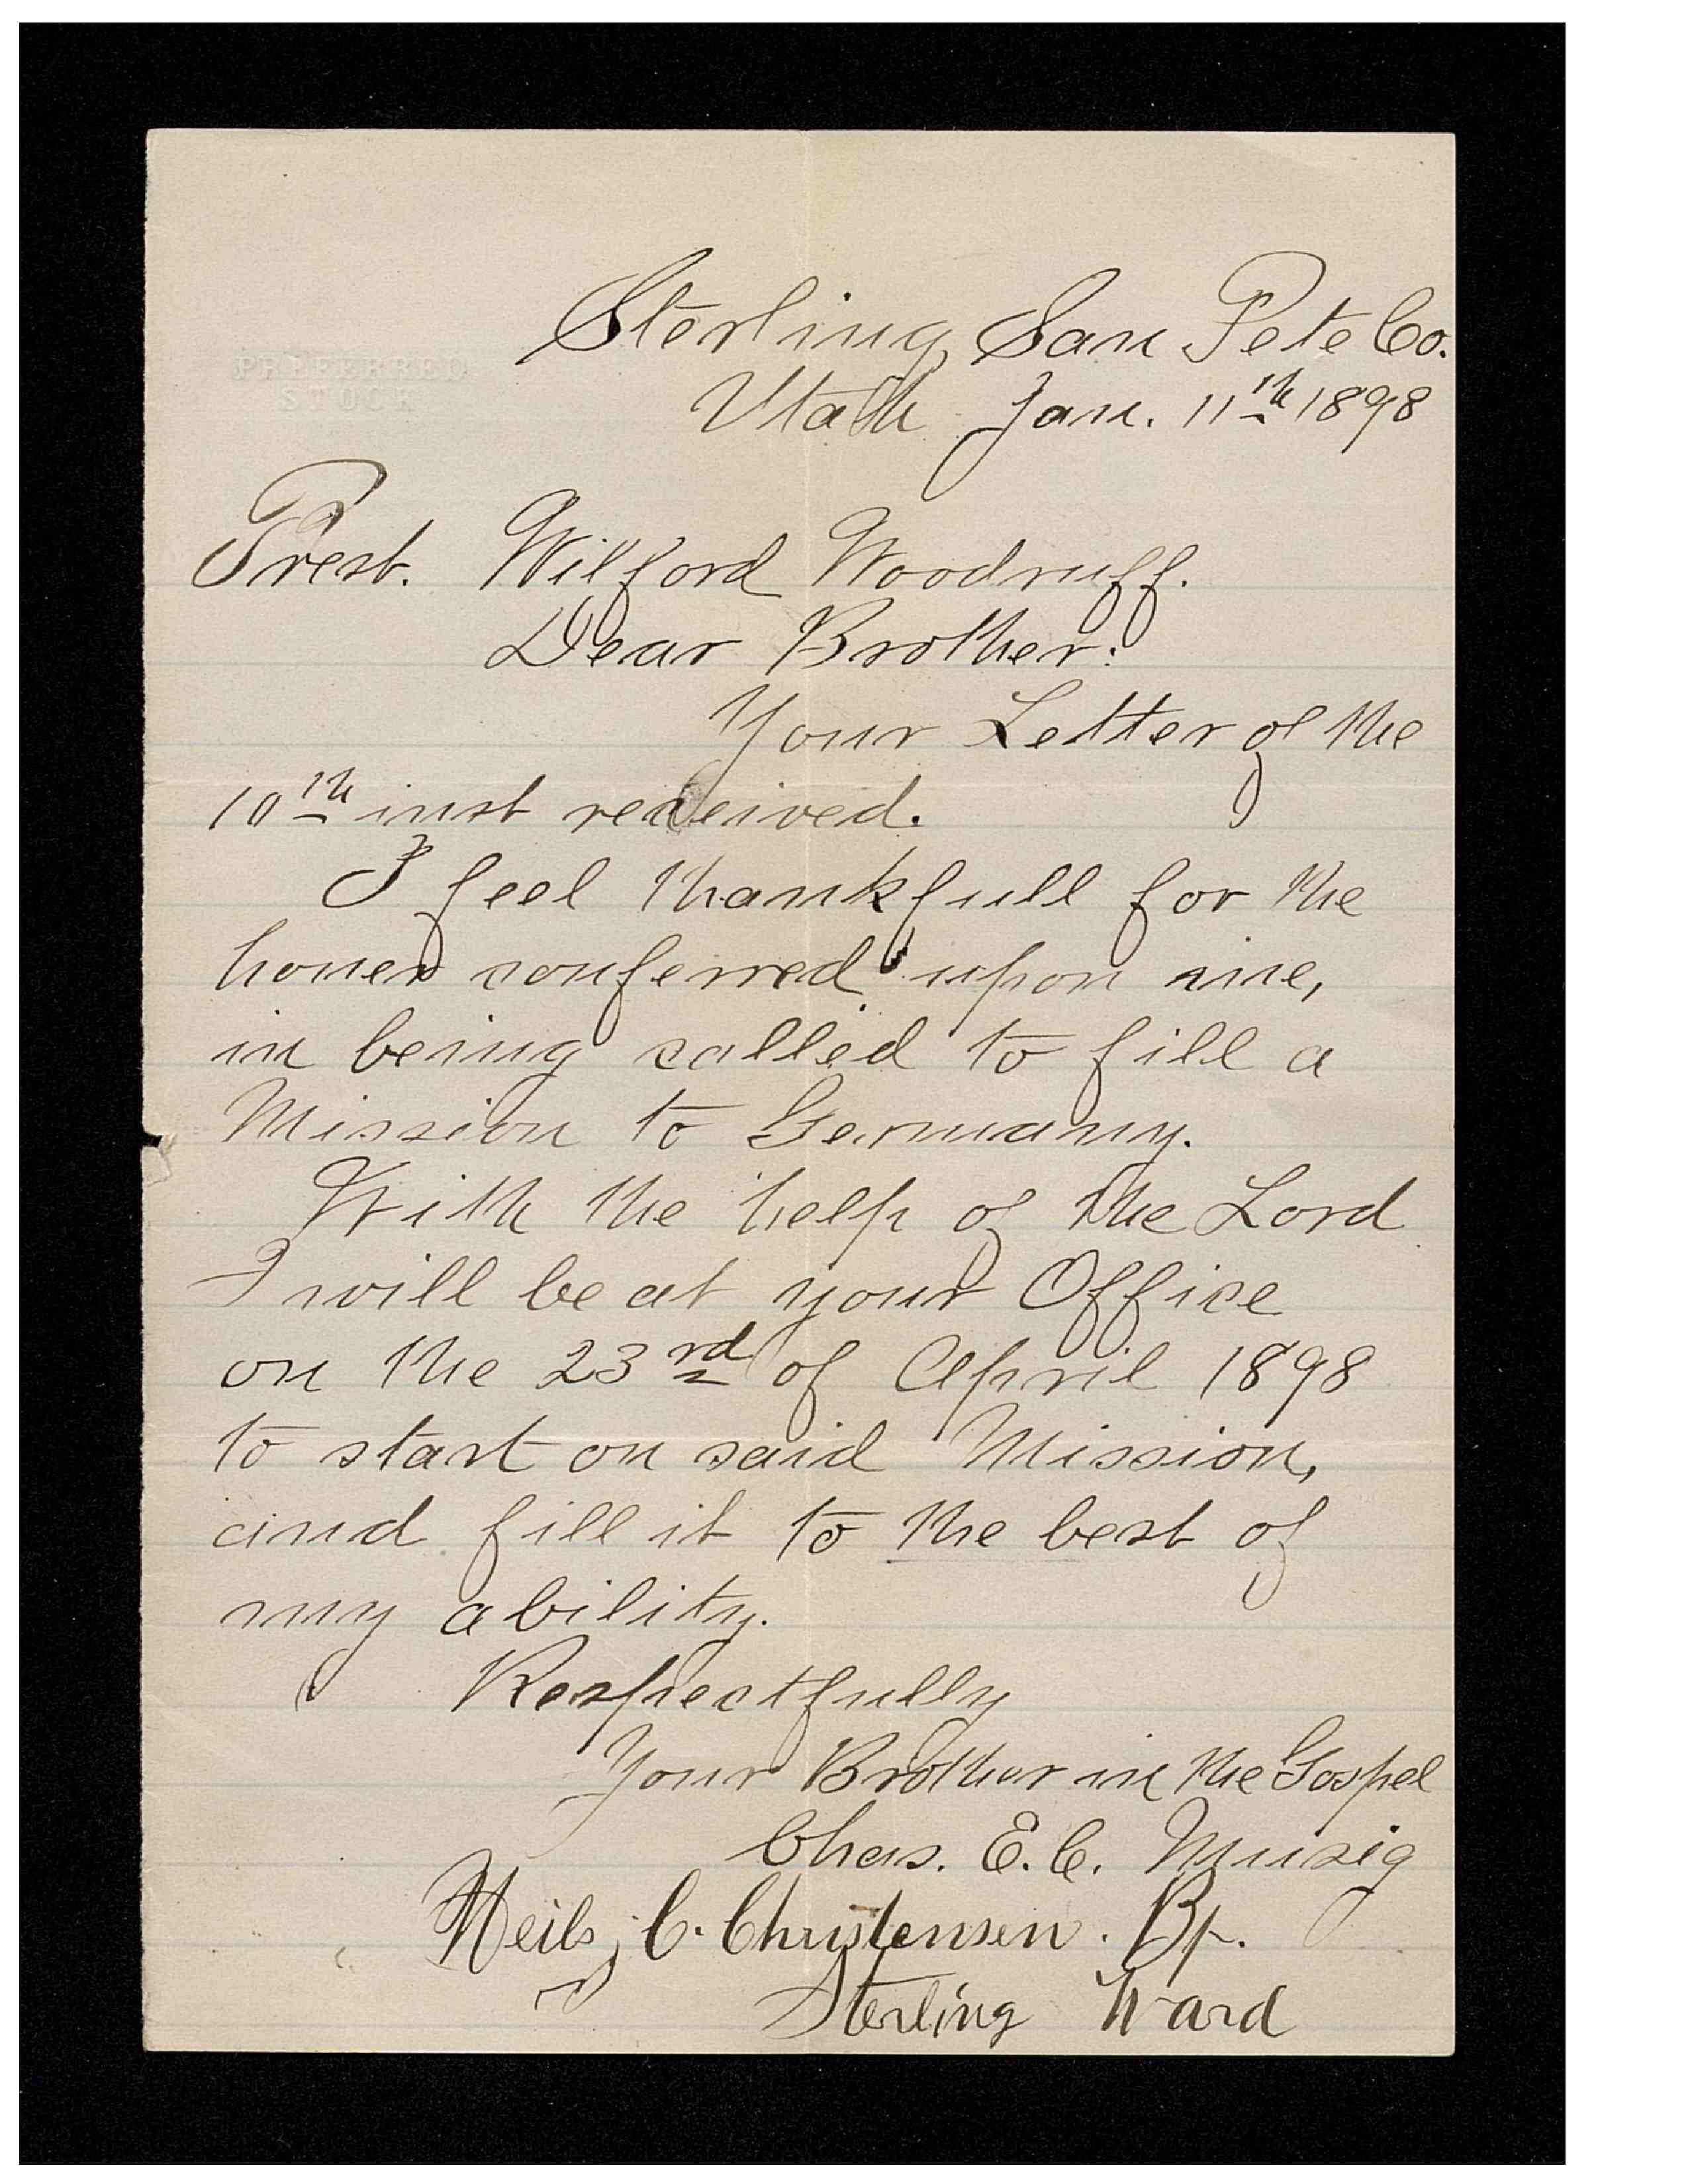 PREFERRED
STOCK
Sterling, San Pete Co.
Utah Jan. 11th 1898
Prest. Wilford Woodruff.
Dear Brother:
Your Letter of the
10th inst received.
I feel thankfull for the
honer conferred upon me,
in being called to fill a
Mission to Germany.
With the help of the Lord
I will be at your Office
on the 23rd of April 1898
to start on said Mission,
and fill it to the best of
my ability.
Respectfully
Your Brother in the Gospel
Chas. E. C. Musig
Neils, C. Christensen. Bp.
Sterling Ward